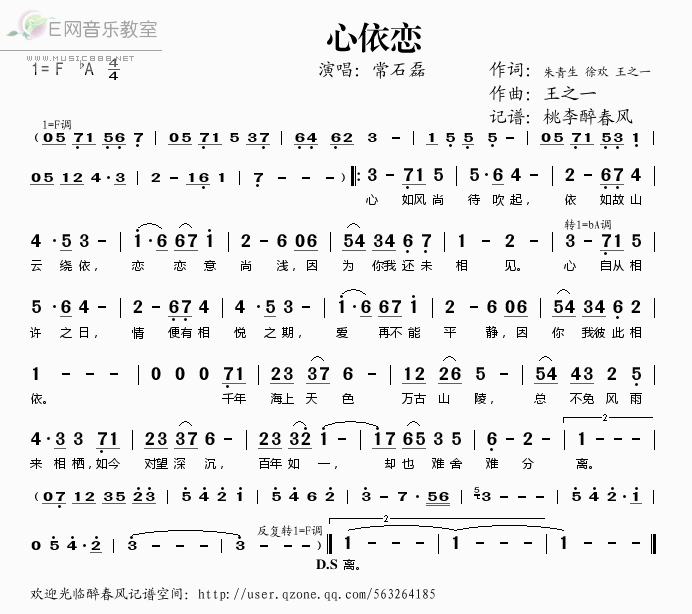 E网音乐教室
WWW.MUSIC888.NET
心依恋
1=F ♭A 4/4
演唱：常石磊
作词：朱青生 徐欢 王之一
作曲：王之一
记谱：桃李醉春风
1=F调
(05 71 56 7 | 05 71 5 37 | 64 62 3 - | 1 5 5 5 - | 05 71 53 1 |
05 12 4·3 | 2 - 16 1 | 7 - - - ) |: 3 - 71 5 | 5·6 4 - | 2 - 67 4 |
心 如风尚 待 吹起， 依 如故山
4·5 3 - | 1·6 67 1 | 2 - 6 06 | 54 34 6 7 | 1 - 2 - | 3 - 71 5 |
转1=bA调
云绕依， 恋 恋意 尚 浅，因 为 你我还未 相 见。 心 自从相
5·6 4 - | 2 - 67 4 | 4·5 3 - | 1·6 67 1 | 2 - 6 06 | 54 34 6 2 |
许 之日， 情 便有相 悦之期， 爱 再不能 平 静，因 你 我彼此相
1 - - - | 0 0 0 71 | 23 37 6 - | 12 26 5 - | 54 43 2 5 |
依。 千年 海上 天 色 万古 山 陵， 总 不免 风 雨
4·3 3 71 | 23 37 6 - | 23 32 1 - | 17 65 3 5 | 6 - 2 - | 1 - - - |
2
来 相栖，如今 对望 深 沉， 百年 如 一， 却也 难舍 难 分 离。
(07 12 35 23 | 5 4 2 1 | 5 4 6 2 | 3 - 7·56 | 3 - - - | 5 4 2·1 |
0 5 4·2 | 3 - - - | 3 - - - ) :| 1 - - - | 1 - - - | 1 - - - ||
反复转1=F调
2
D.S 离。
欢迎光临醉春风记谱空间：http://user.qzone.qq.com/563264185